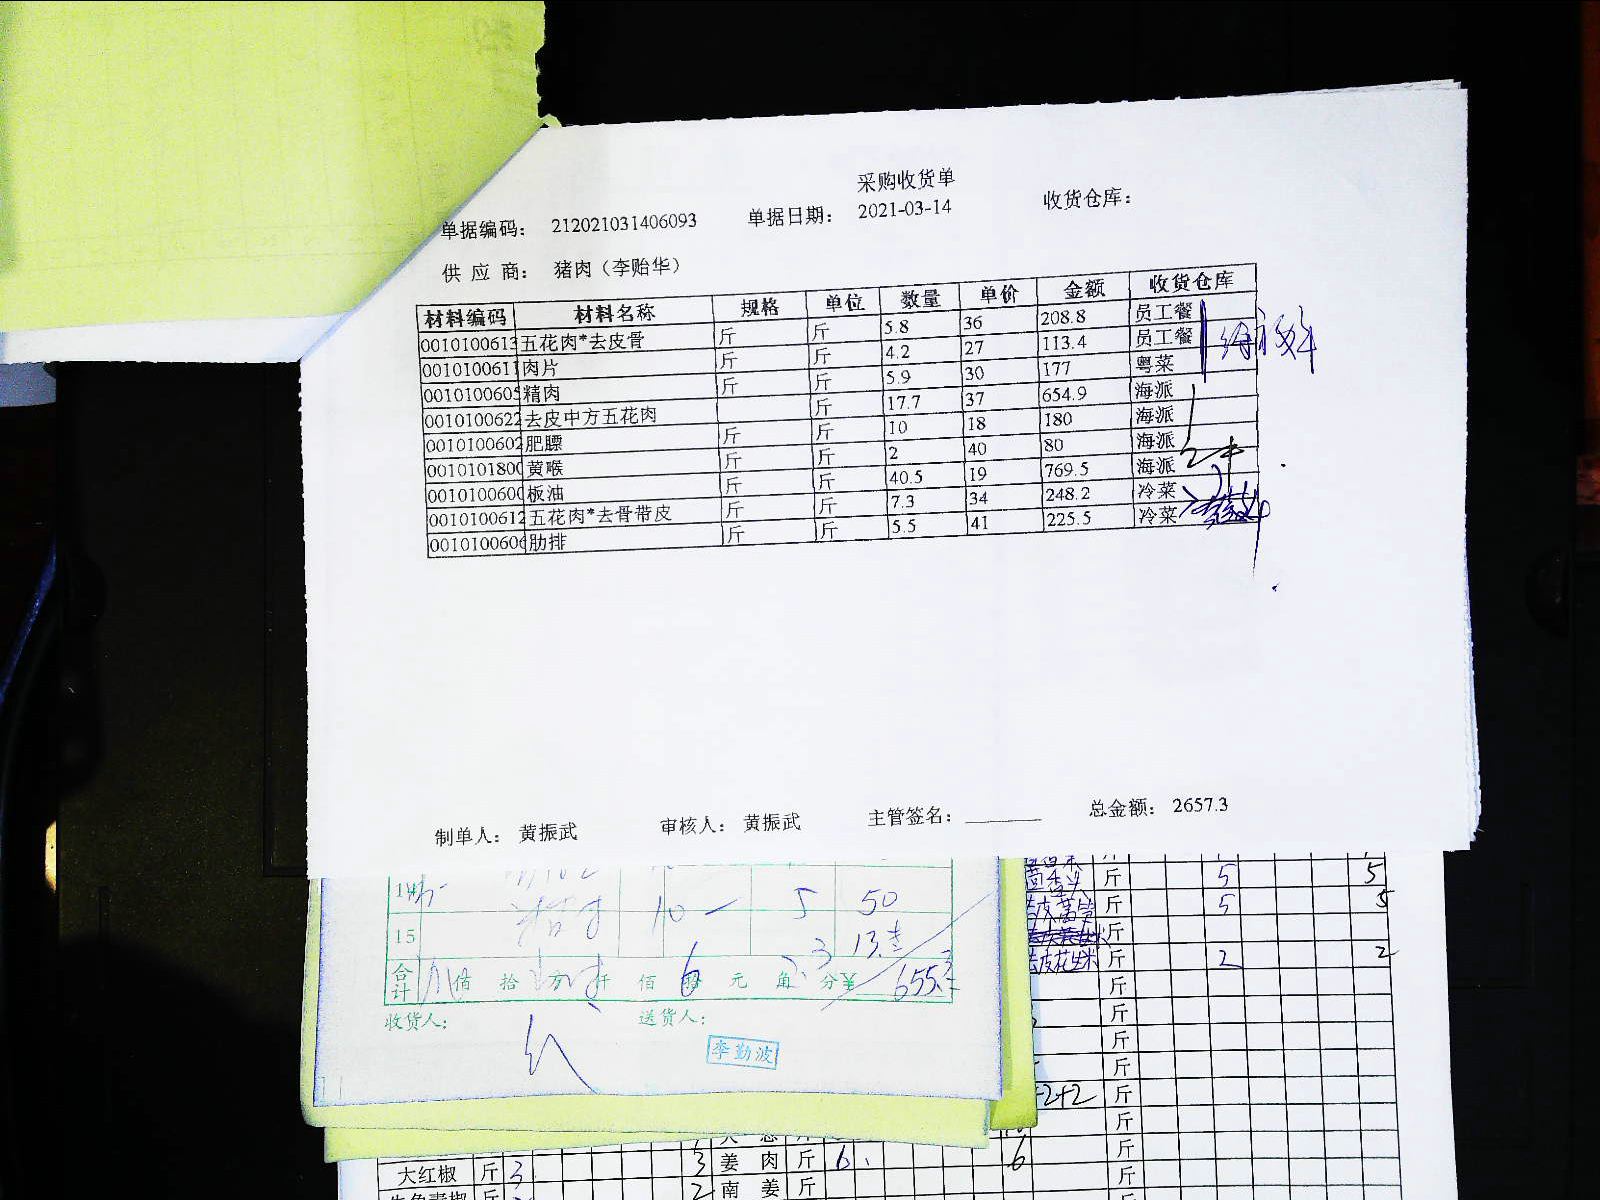 采购收货单
单据编码： 212021031406093 单据日期： 2021-03-14 收货仓库：
供 应 商： 猪肉（李贻华）
材料编码 材料名称 规格 单位 数量 单价 金额 收货仓库
0010100613 五花肉*去皮骨 斤 斤 5.8 36 208.8 员工餐
0010100611 肉片 斤 斤 4.2 27 113.4 员工餐
0010100605 精肉 斤 斤 5.9 30 177 粤菜
0010100622 去皮中方五花肉 斤 17.7 37 654.9 海派
0010100602 肥膘 斤 斤 10 18 180 海派
0010101800 黄喉 斤 斤 2 40 80 海派
0010100600 板油 斤 斤 40.5 19 769.5 海派
0010100612 五花肉*去骨带皮 斤 斤 7.3 34 248.2 冷菜
0010100606 肋排 斤 斤 5.5 41 225.5 冷菜
制单人： 黄振武 审核人： 黄振武 主管签名： 总金额： 2657.3
14 5 50
15
合计 佰 拾 万 仟 佰 拾 元 角 分¥
收货人： 送货人：
李勤波
斤 5 5
斤 5 5
斤
去皮花生米 斤 2 2
斤
斤
斤
斤
+2+2 斤
斤
大红椒 斤 3 3 姜 肉 斤 6 6 斤
2 南 姜 斤 斤